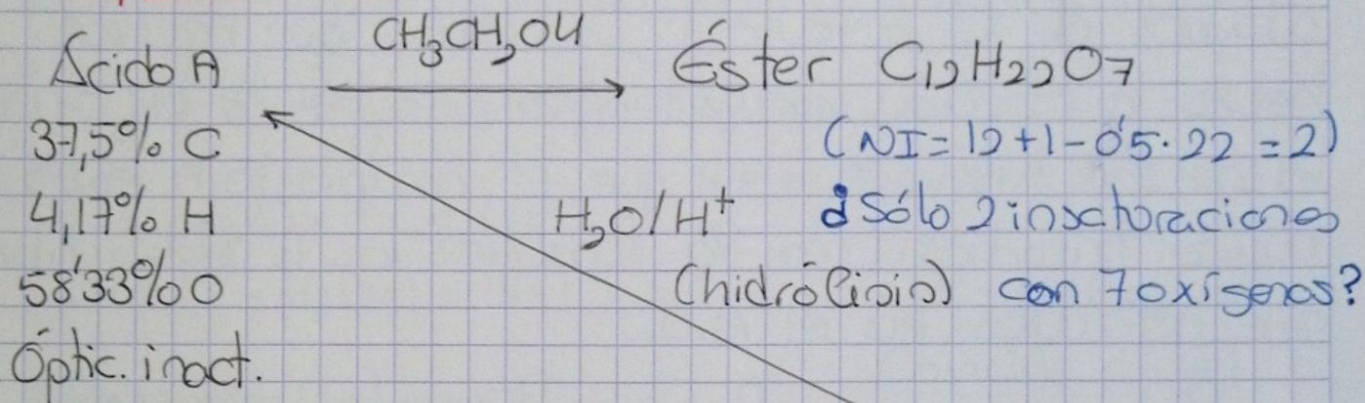 Ácido A CH3CH2OH Éster C12H22O7
37,5% C (NI = 12+1-0'5·22 = 2)
4,17% H H2O/H+ ¿Sólo 2 insaturaciones
58'33% O (hidrólisis) con 7 oxígenos?
Óptic. inact.